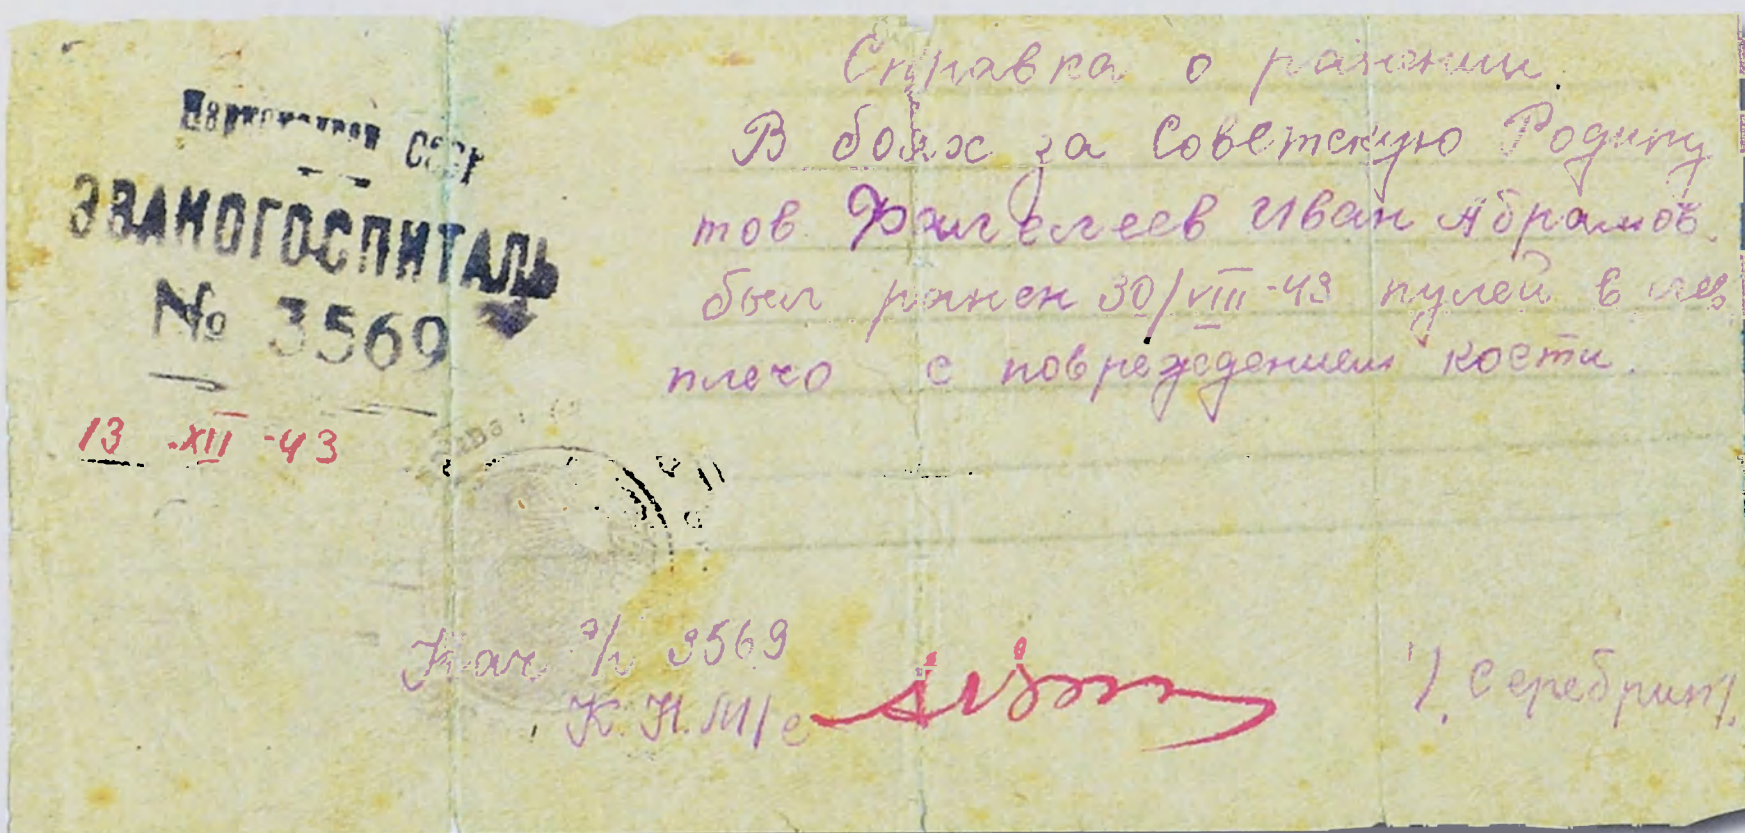 Наркомздрав СССР
ЭВАКОГОСПИТАЛЬ
№ 3569
13 XII -43
Справка о ранении.
В боях за Советскую Родину
тов. Иван Абрамов.
был ранен 30/VIII-43 пулей в лев
плечо с повреждением кости.
Нач э/г 3569
К. Н. М/с
/Серебрин/.